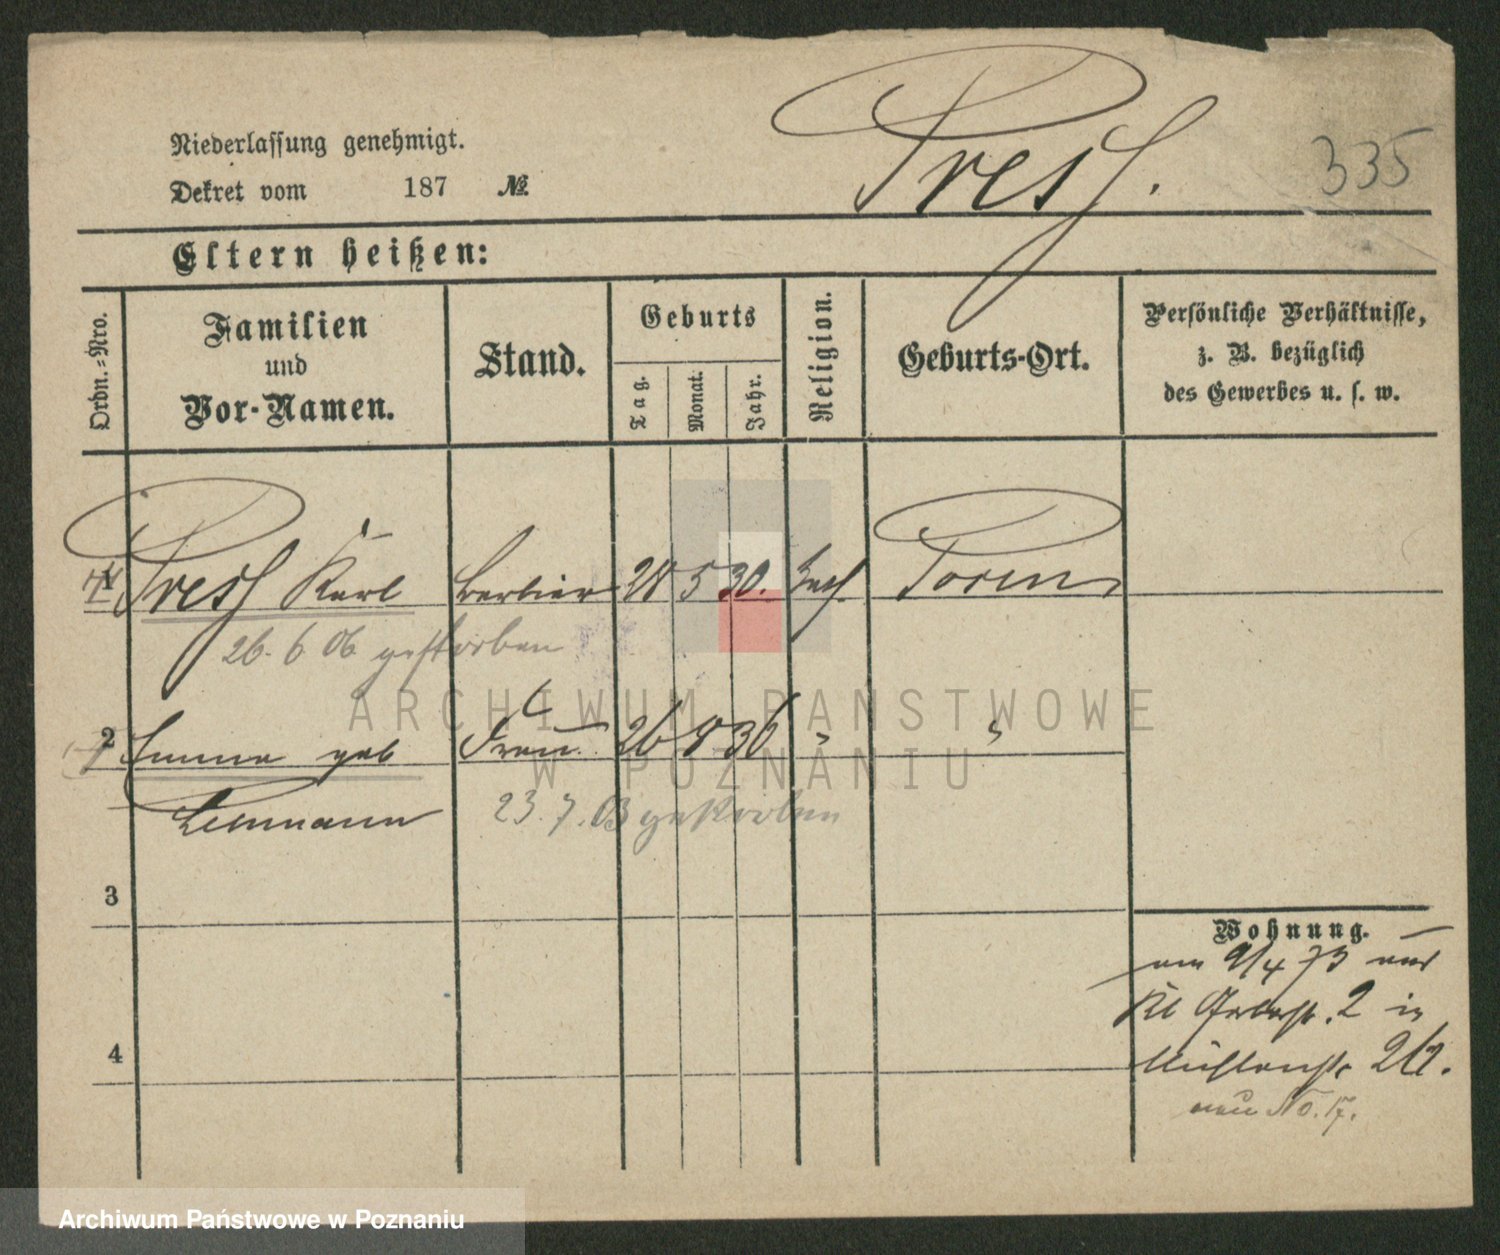 Niederlassung genehmigt.
Dekret vom 187 №
Presch.
335
Eltern heißen:
Ordn.-Nro.
Familien
und
Vor-Namen.
Stand.
Geburts
Tag.
Monat.
Jahr.
Religion.
Geburts-Ort.
Persönliche Verhältnisse,
z. B. bezüglich
des Gewerbes u. s. w.
1 Karl Barbier 28 5 30. Posen
26. 6 06 gestorben
2 Emma geb Frau 26 8 36 "
23. 7. 03 gestorben
3
Wohnung.
am 9/4 73 aus
Kl Gerberstr. 2 in
4
Mühlenstr
neu No. 17.
ARCHIWUM PAŃSTWOWE
W POZNANIU
Archiwum Państwowe w Poznaniu